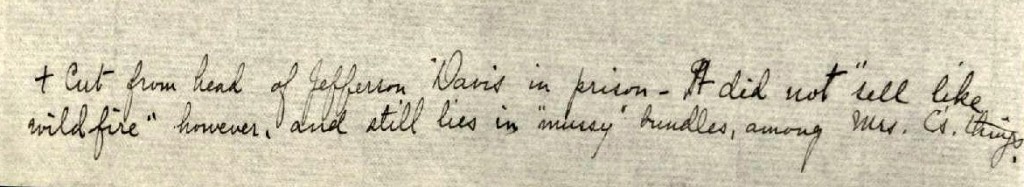 + Cut from head of Jefferson Davis in prison - It did not "sell like
wildfire" however, and still lies in "mussy" bundles, among Mrs. C's. things.